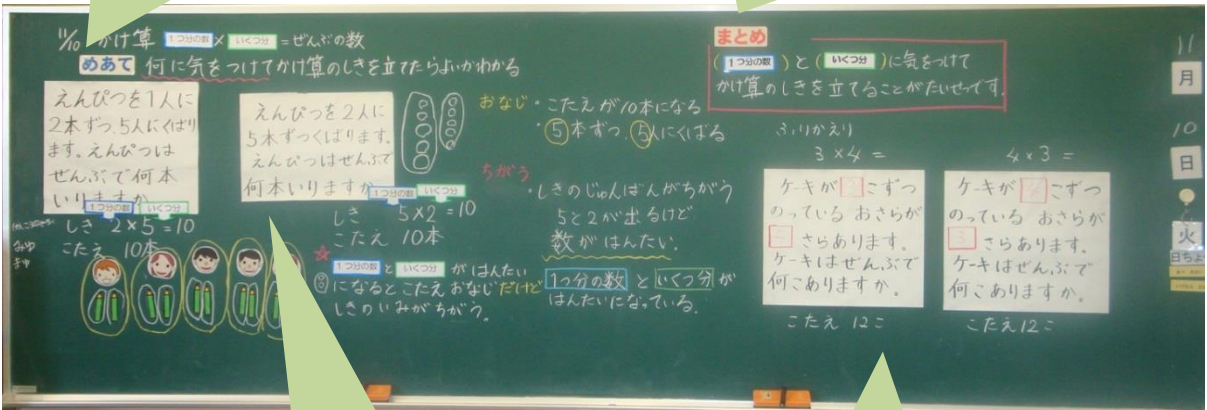 11/10 かけ算 1つ分の数 × いくつ分 = ぜんぶの数
めあて 何に気をつけてかけ算のしきを立てたらよいかわかる
えんぴつを1人に
2本ずつ、5人にくばり
ます。えんぴつは
ぜんぶで何本
いりますか
1つ分の数 いくつ分
しき 2×5=10
こたえ 10本
えんぴつを2人に
5本ずつくばります。
えんぴつはぜんぶで
何本いりますか
1つ分の数 いくつ分
しき 5×2=10
こたえ 10本
1つ分の数 と いくつ分 がはんたい
になるとこたえおなじだけど
しきのいみがちがう。
おなじ・こたえが10本になる
・5本ずつ、5人にくばる
ちがう
・しきのじゅんばんがちがう
5と2が出るけど
数がはんたい。
1つ分の数 と いくつ分 が
はんたいになっている。
まとめ
(1つ分の数)と(いくつ分)に気をつけて
かけ算のしきを立てることがたいせつです。
ふりかえり
3×4=
ケーキが3こずつ
のっている おさらが
4さらあります。
ケーキはぜんぶで
何こありますか。
こたえ 12こ
4×3=
ケーキが4こずつ
のっている おさらが
3さらあります。
ケーキはぜんぶで
何こありますか。
こたえ12こ
11
月
10
日
火